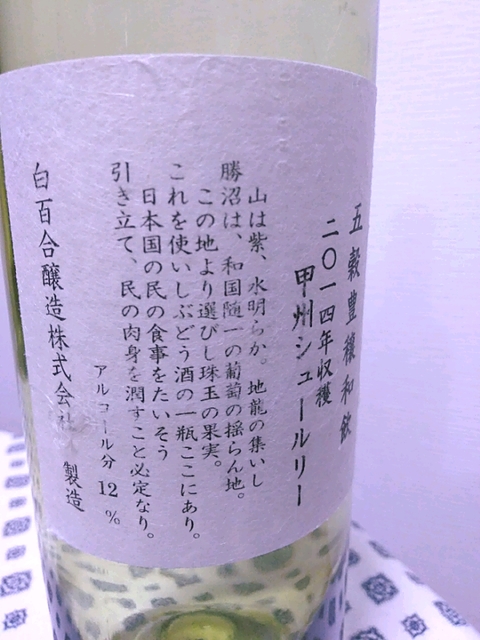 五穀豊穣和飲
二〇一四年収穫
甲州シュールリー
山は紫、水明らか。地龍の集いし
勝沼は、和国随一の葡萄の揺らん地。
この地より選びし珠玉の果実。
これを使いしぶどう酒の一瓶ここにあり。
日本国の民の食事をたいそう
引き立て、民の肉身を潤すこと必定なり。
アルコール分 12 %
白百合醸造株式会社 製造